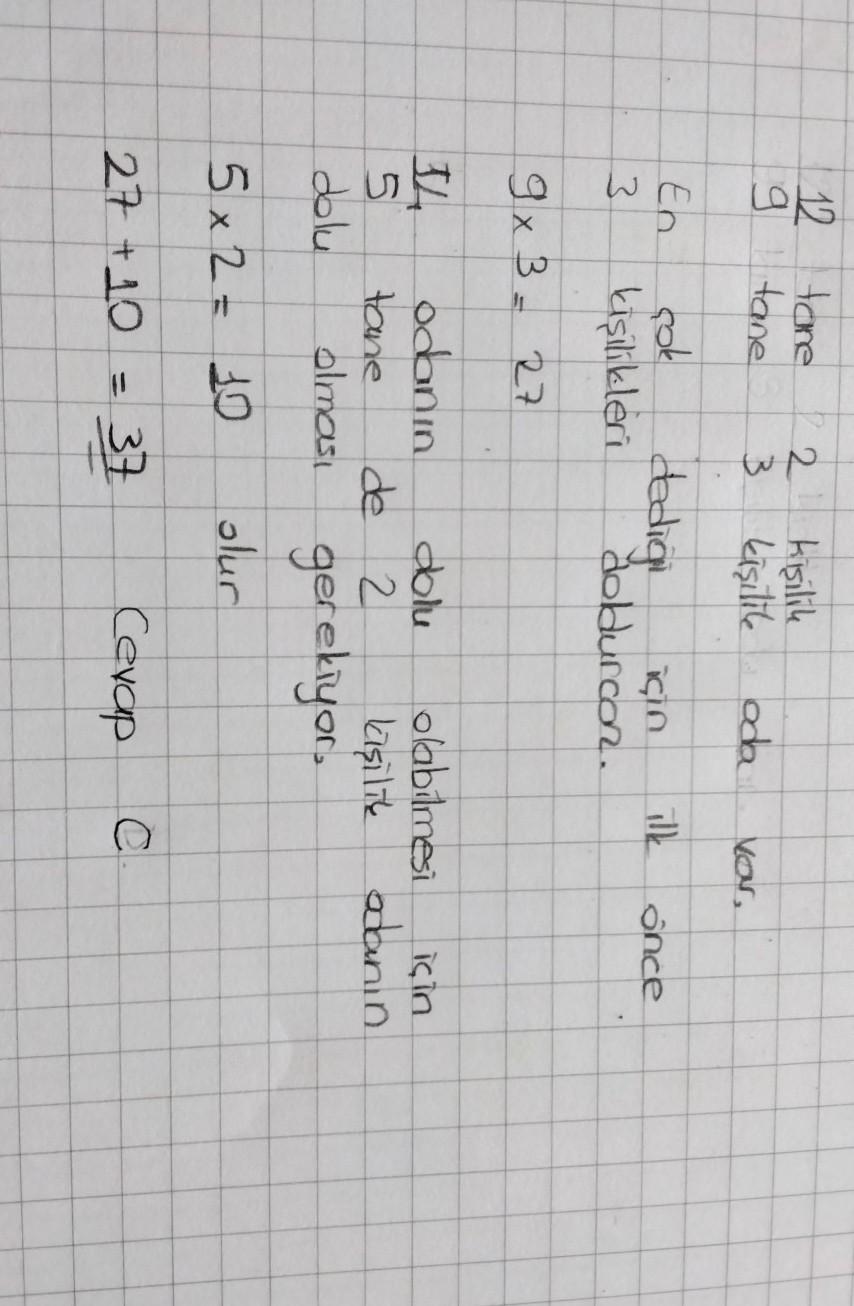 12 tane 2 kişilik
9 tane 3 kişilik oda var.
En çok dediği için ilk önce
3 kişilikleri doldurcaz.
9 x 3 = 27
14 odanın dolu olabilmesi için
5 tane de 2 kişilik odanın
dolu olması gerekiyor.
5 x 2 = 10 olur
27 + 10 = 37 Cevap C